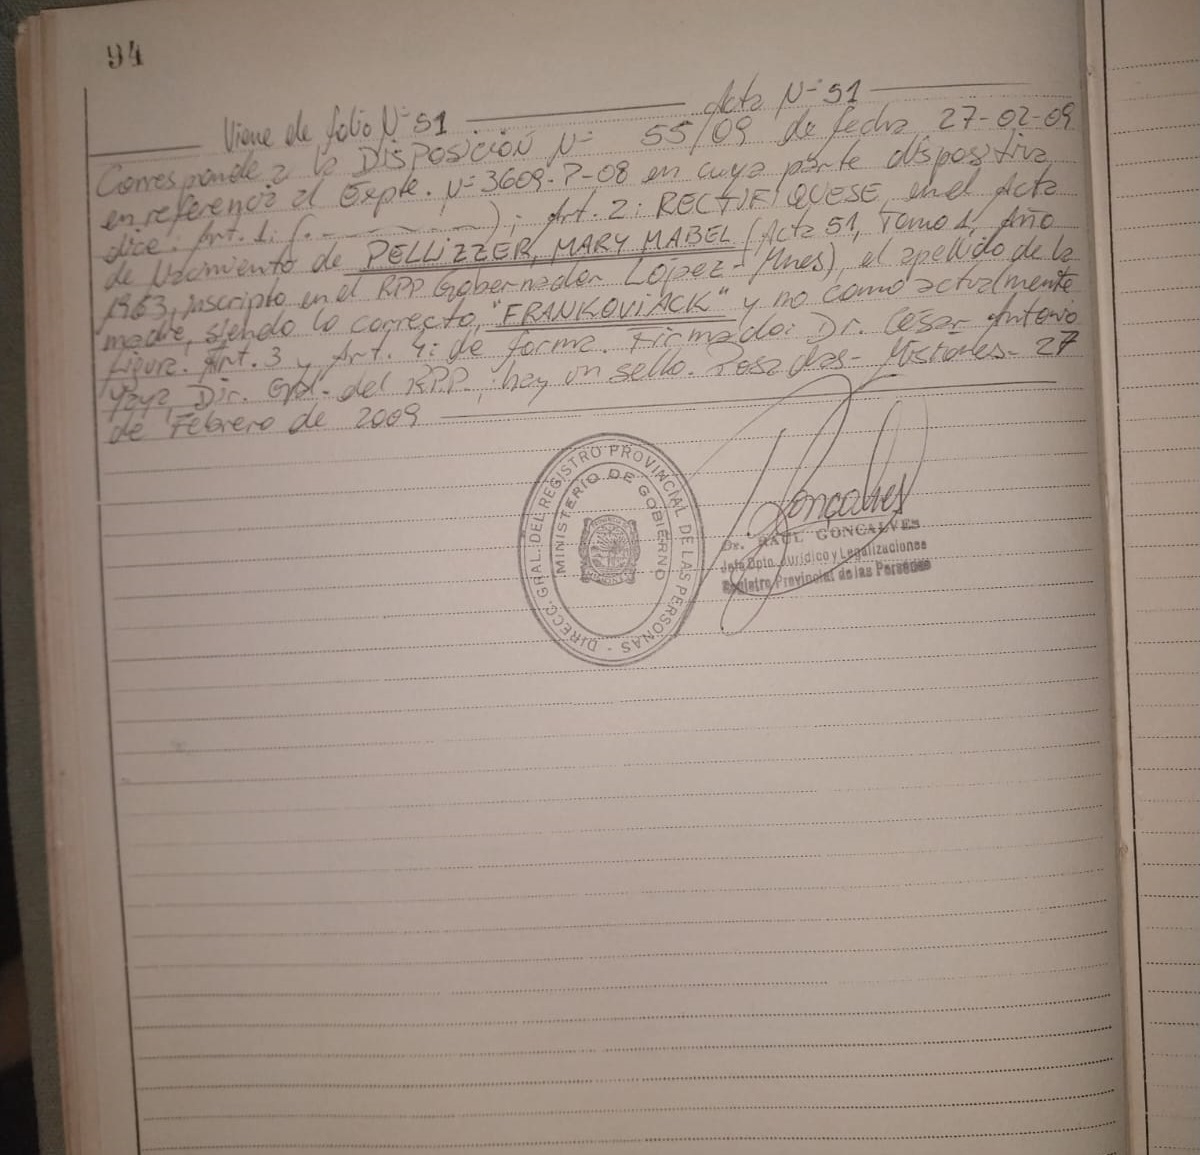 94
Viene de folio Nº 51 Acta Nº 51
Corresponde a la DISPOSICIÓN Nº 55/09 de fecha 27-02-09
en referencia al Expte. Nº 3609-P-08 en cuya parte dispositiva
dice: Art. 1: (- - - - -); Art. 2: RECTIFIQUESE, en el Acta
de Nacimiento de PELLIZZER, MARY MABEL (Acta 51, Tomo 1, Año
1963, inscripto en el RPP Gobernador López-Mnes), el apellido de la
madre, siendo lo correcto, "FRANKOVIACK" y no como actualmente
figura. Art. 3 y Art. 4: de forma. Firmado: Dr. Cesar Antonio
Yaya, Dir. Gral. del R.P.P.; hay un sello. Posadas- Misiones- 27
de Febrero de 2009
DIRECC. GRAL. DEL REGISTRO PROVINCIAL DE LAS PERSONAS -
MINISTERIO DE GOBIERNO
MISIONES
Gonçalves
Dr. RAUL GONCALVES
Jefe Dpto. Jurídico y Legalizaciones
Registro Provincial de las Personas